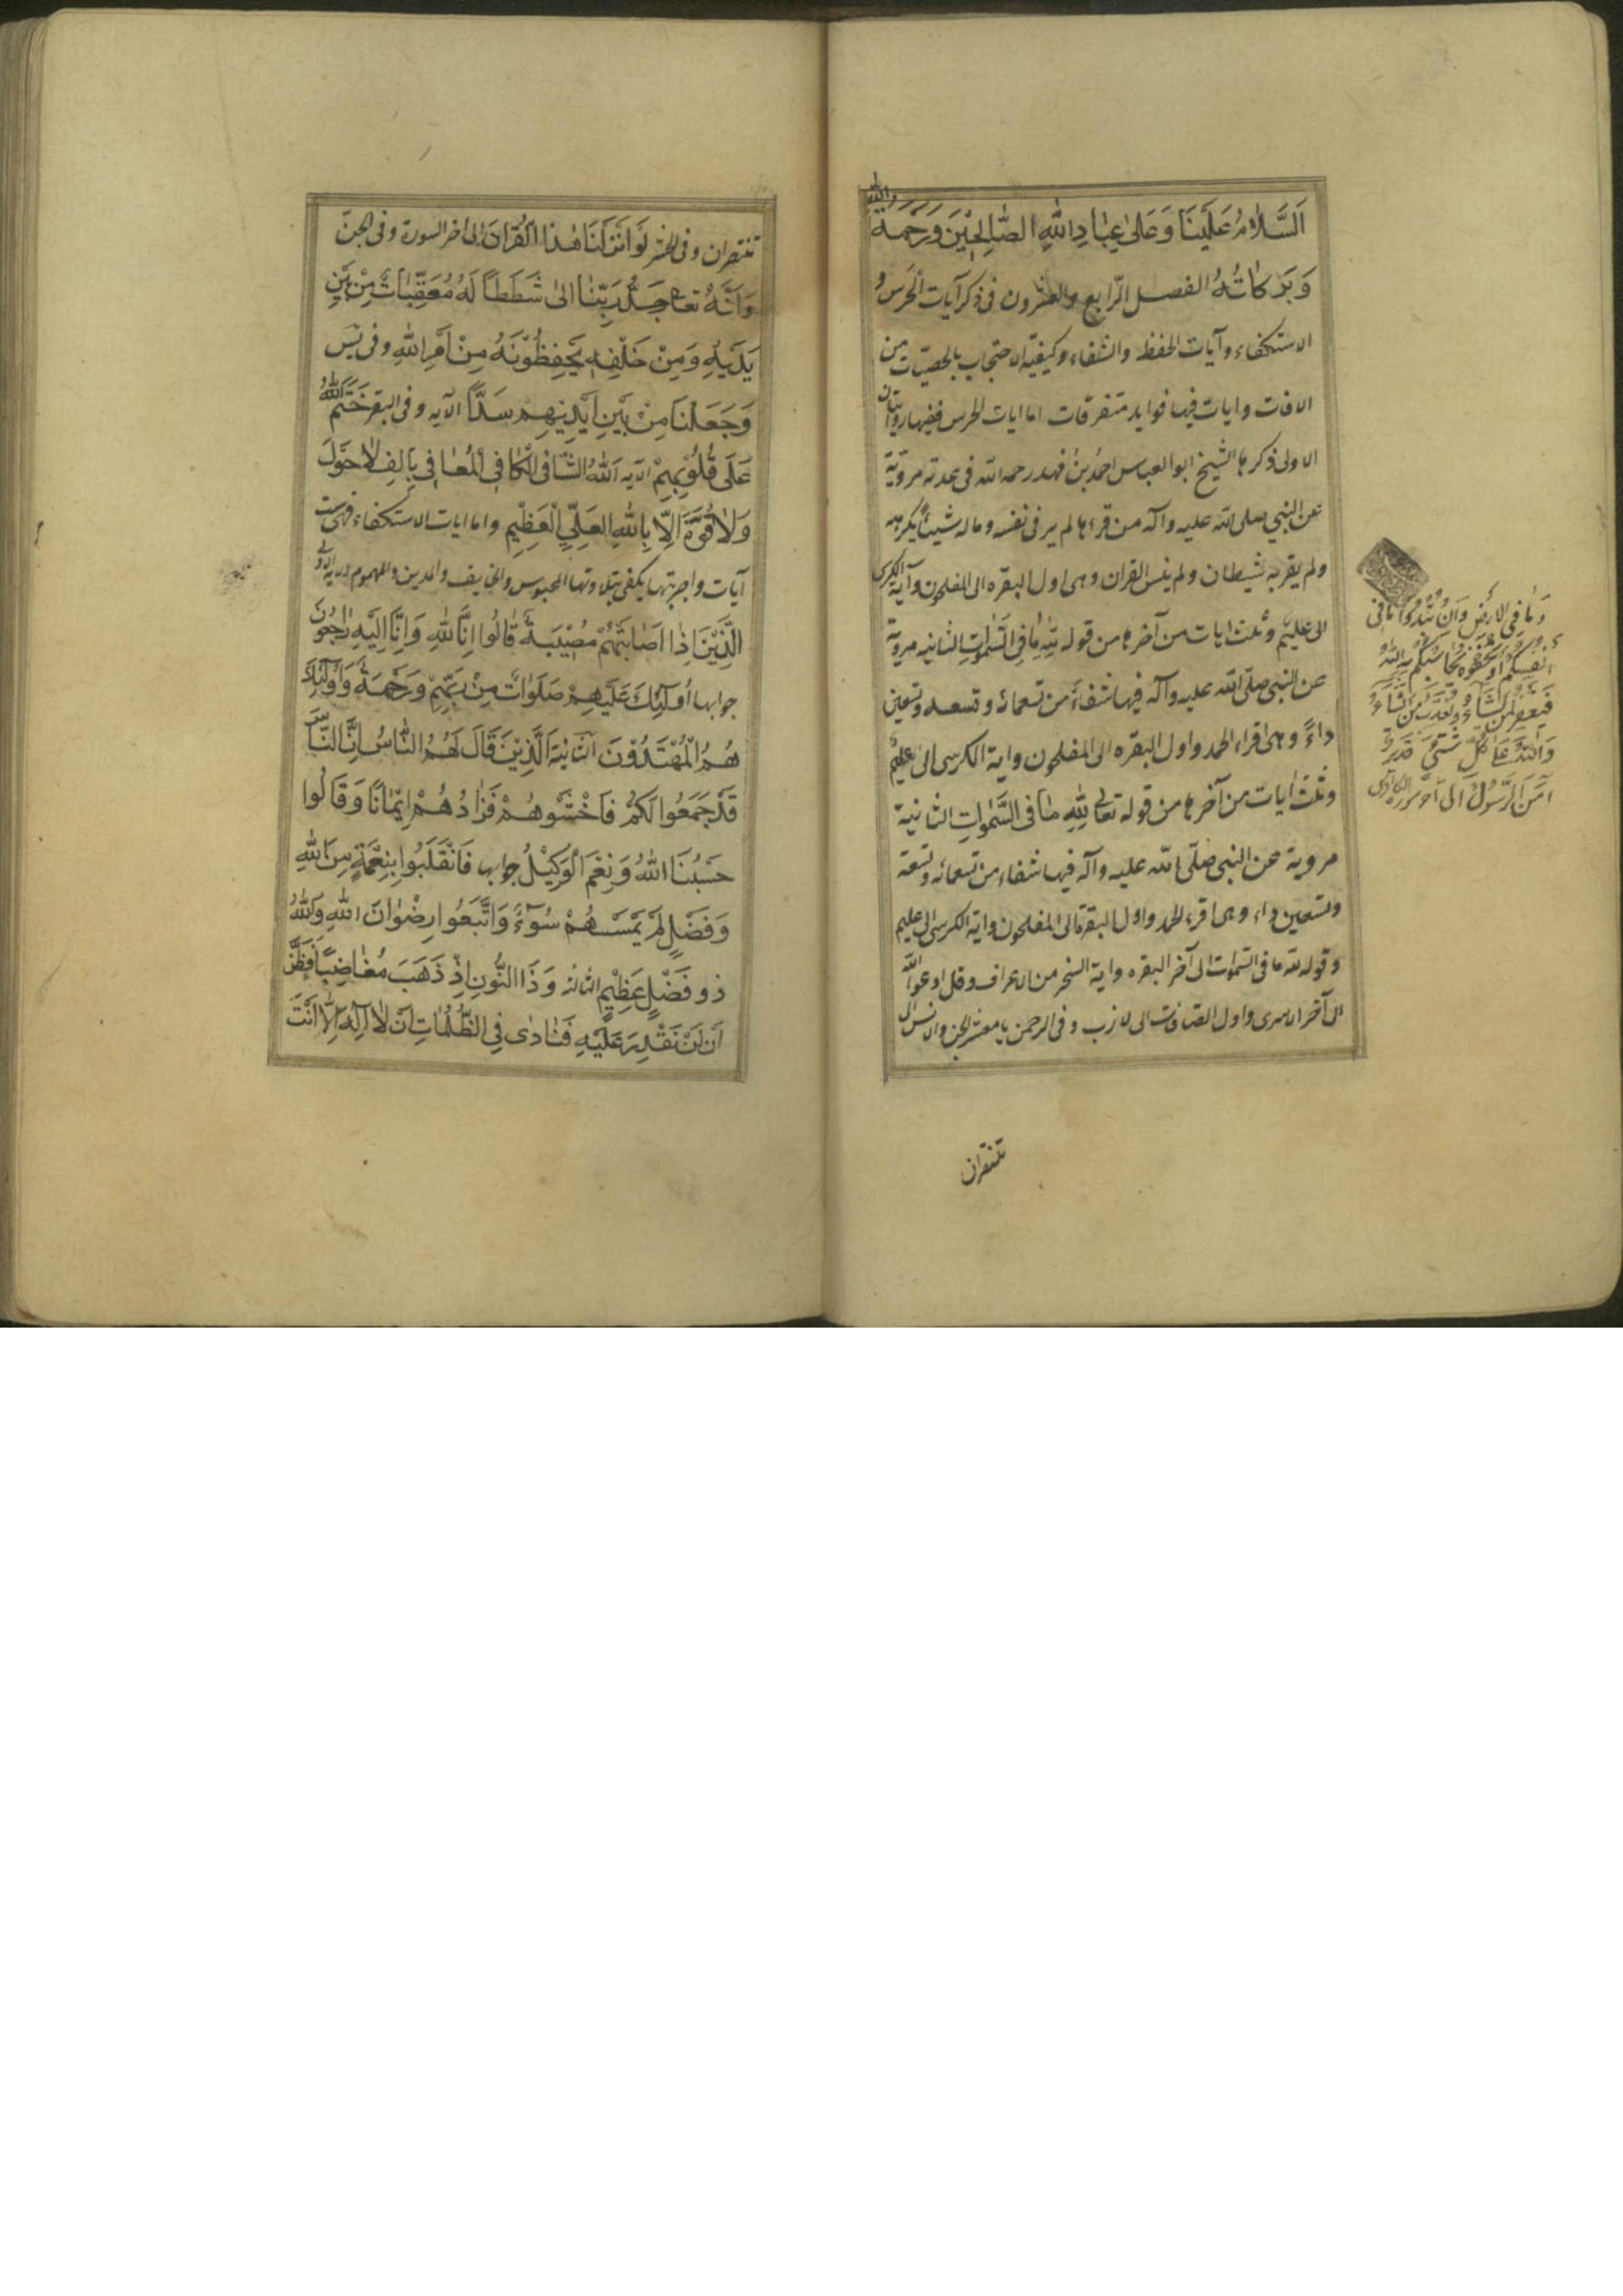 اَلسَّلامُ عَلَيْنَا وَعَلىٰ عِبٰادِ اللّٰهِ الصّٰالِحِيْنَ وَرَحْمَةُ اللّٰهِ
وَبَرَكاتُهُ الفصل الرّابع والعشرون فى ذكر آيات الحرس و
الاستكفاء وآيات الحفظ والشفاء وكيفيّة الاحتجاب بالحصيّات من
الافات وايات فيها فوايد متفرقات اما ايات الحرس ففيها روايتان
الاولى ذكرها الشيخ ابو العباس احمد بن فهد رحمه الله فى عدته مرويّة
عن النبي صلى الله عليه وآله من قرءها لم ير فى نفسه وماله شيئاً يكرهه
ولم يقربه شيطان ولم ينس القران وهى اول البقره الى المفلحون وآية الكرسى
الى عليم وثلث ايات من آخرها من قوله لِلّٰهِ مٰا فِى السَّمٰواتِ الثانيه مروية
عن النبى صلّى الله عليه وآله فيها شفاء من تسعمائه وتسعه وتسعين
داءً وهى اقراء الحمد واول البقره الى المفلحون واية الكرسى الى عليم
وثلث ايات من آخرها من قوله تعالى لِلّٰهِ مٰا فى السَّمٰواتِ الثانية
مروية عن النبى صلّى الله عليه وآله فيها شفاء من تسعمائه وتسعة
وتسعين داء وهى اقرء الحمد واول البقرة الى المفلحون واية الكرسى الى عليم
وقوله لله ما فى السموات الى آخر البقره واية السخر من الاعراف وقل ادعوا الله
الى آخر الاسرى واول الصافات الى لازب وفى الرحمن يا معشر الجن والانس الى
تنتصران
وَمٰا فِى الارْضِ وَاِنْ تُبْدُوا مٰا فى
اَنْفُسِكُمْ اَوْ تُخْفُوهُ يُحٰاسِبْكُمْ بِهِ اللّٰهُ
فَيَغْفِرُ لِمَنْ يَشٰاءُ وَيُعَذِّبُ مَنْ يَشٰاءُ
وَاللّٰهُ عَلىٰ كُلِّ شَىْءٍ قَديرٌ
آمَنَ الرَّسُولُ الى آخر سورة
تنتصران وفى الحشر لَوْ اَنْزَلْنَا هٰذَا الْقُرْانَ الى اخر السورة وفى الجنّ
وَاَنَّهُ تعالى جَدُّ رَبِّنٰا الىٰ شَطَطاً لَهُ مُعَقِّبٰاتٌ مِنْ بَيْنِ
يَدَيْهِ وَمِنْ خَلْفِهِ يَحْفَظُوْنَهُ مِنْ اَمْرِ اللّٰهِ وفى يٰس
وَجَعَلْنَا مِنْ بَيْنِ اَيْدِيْهِمْ سَدّاً الآيه وفى البقر خَتَمَ اللّٰهُ
عَلىٰ قُلُوْبِهِمْ الآيه اَللّٰهُ الشّٰافى الْكٰافى الْمُعٰافى بِالِفِ لاٰ حَوْلَ
وَلاٰ قُوَّةَ اِلّٰا بِاللّٰهِ العَلِيِّ الْعَظِيْمِ واما ايات الاستكفاء فهى ست
آيات واجوبتها يكفى بتلاوتها المحبوس والخايف والمدين والمهموم
الَّذِيْنَ اِذٰا اَصٰابَتْهُمْ مُصِيْبَةٌ قٰالُوا اِنّٰا لِلّٰهِ وَاِنّٰا اِلَيْهِ رٰاجِعُونَ
جوابها اُولٰئِكَ عَلَيْهِمْ صَلَوٰاتٌ مِنْ رَبِّهِمْ وَرَحْمَةٌ وَاُولٰئِكَ
هُمُ الْمُهْتَدُوْنَ الثانية اَلَّذِيْنَ قَالَ لَهُمُ النّٰاسُ اِنَّ النّٰاسَ
قَدْ جَمَعُوا لَكُمْ فَاخْشَوْهُمْ فَزٰادَهُمْ اِيْمٰانًا وَقٰالُوا
حَسْبُنَا اللّٰهُ وَنِعْمَ الْوَكِيْلُ جوابها فَانْقَلَبُوا بِنِعْمَةٍ مِنَ اللّٰهِ
وَفَضْلٍ لَمْ يَمْسَسْهُمْ سُوْءٌ وَاتَّبَعُوا رِضْوٰانَ اللّٰهِ وَاللّٰهُ
ذو فَضْلٍ عَظِيْمٍ الثالثه وَذَا النُّونِ اِذْ ذَهَبَ مُغٰاضِبًا فَظَنَّ
اَنْ لَنْ نَقْدِرَ عَلَيْهِ فَنٰادٰى فِي الظُّلُمٰاتِ اَنْ لاٰ اِلٰهَ اِلّٰا اَنْتَ